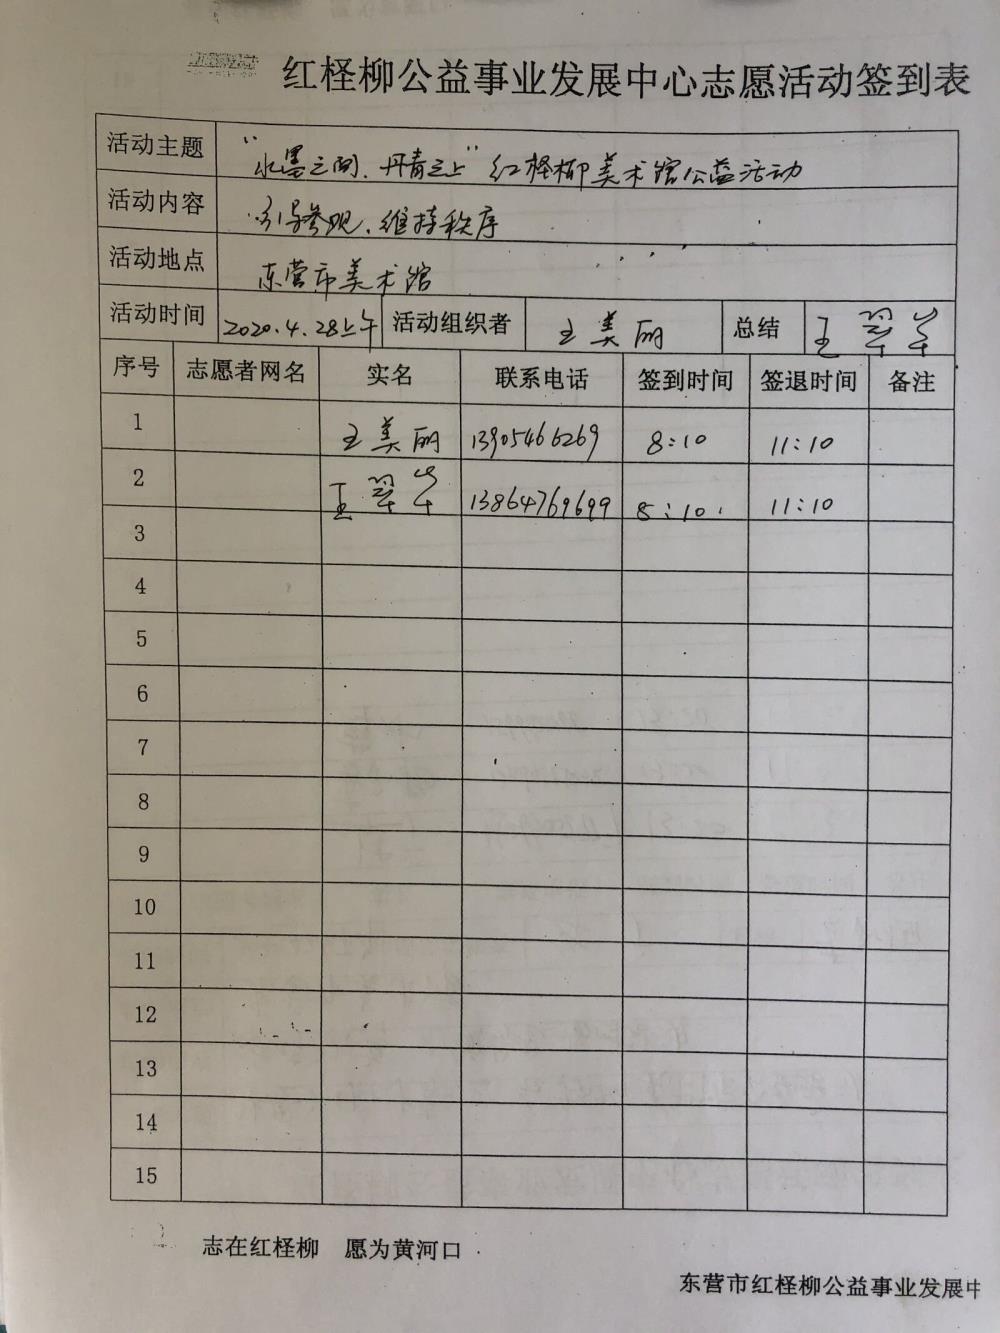 红柽柳公益事业发展中心志愿活动签到表
活动主题 “水墨之间.丹青之上”红柽柳美术馆公益活动
活动内容 引导参观、维持秩序
活动地点 东营市美术馆
活动时间 2020.4.28上午 活动组织者 王美丽 总结 王翠华
序号 志愿者网名 实名 联系电话 签到时间 签退时间 备注
1 王美丽 13905466269 8:10 11:10
2 王翠华 13864769699 8:10 11:10
3
4
5
6
7
8
9
10
11
12
13
14
15
志在红柽柳 愿为黄河口
东营市红柽柳公益事业发展中